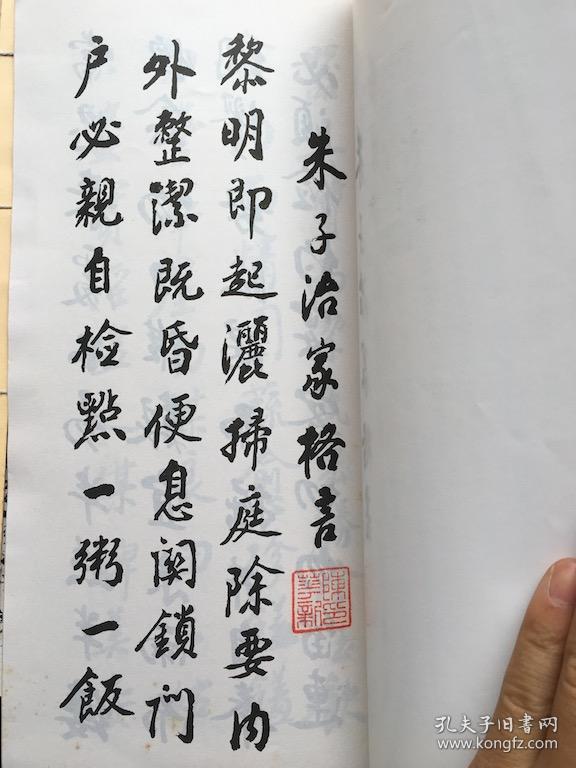 朱子治家格言
黎明即起灑掃庭除要内
外整潔既昏便息関鎖门
户必親自檢點一粥一飯
孔夫子旧书网
www.kongfz.com